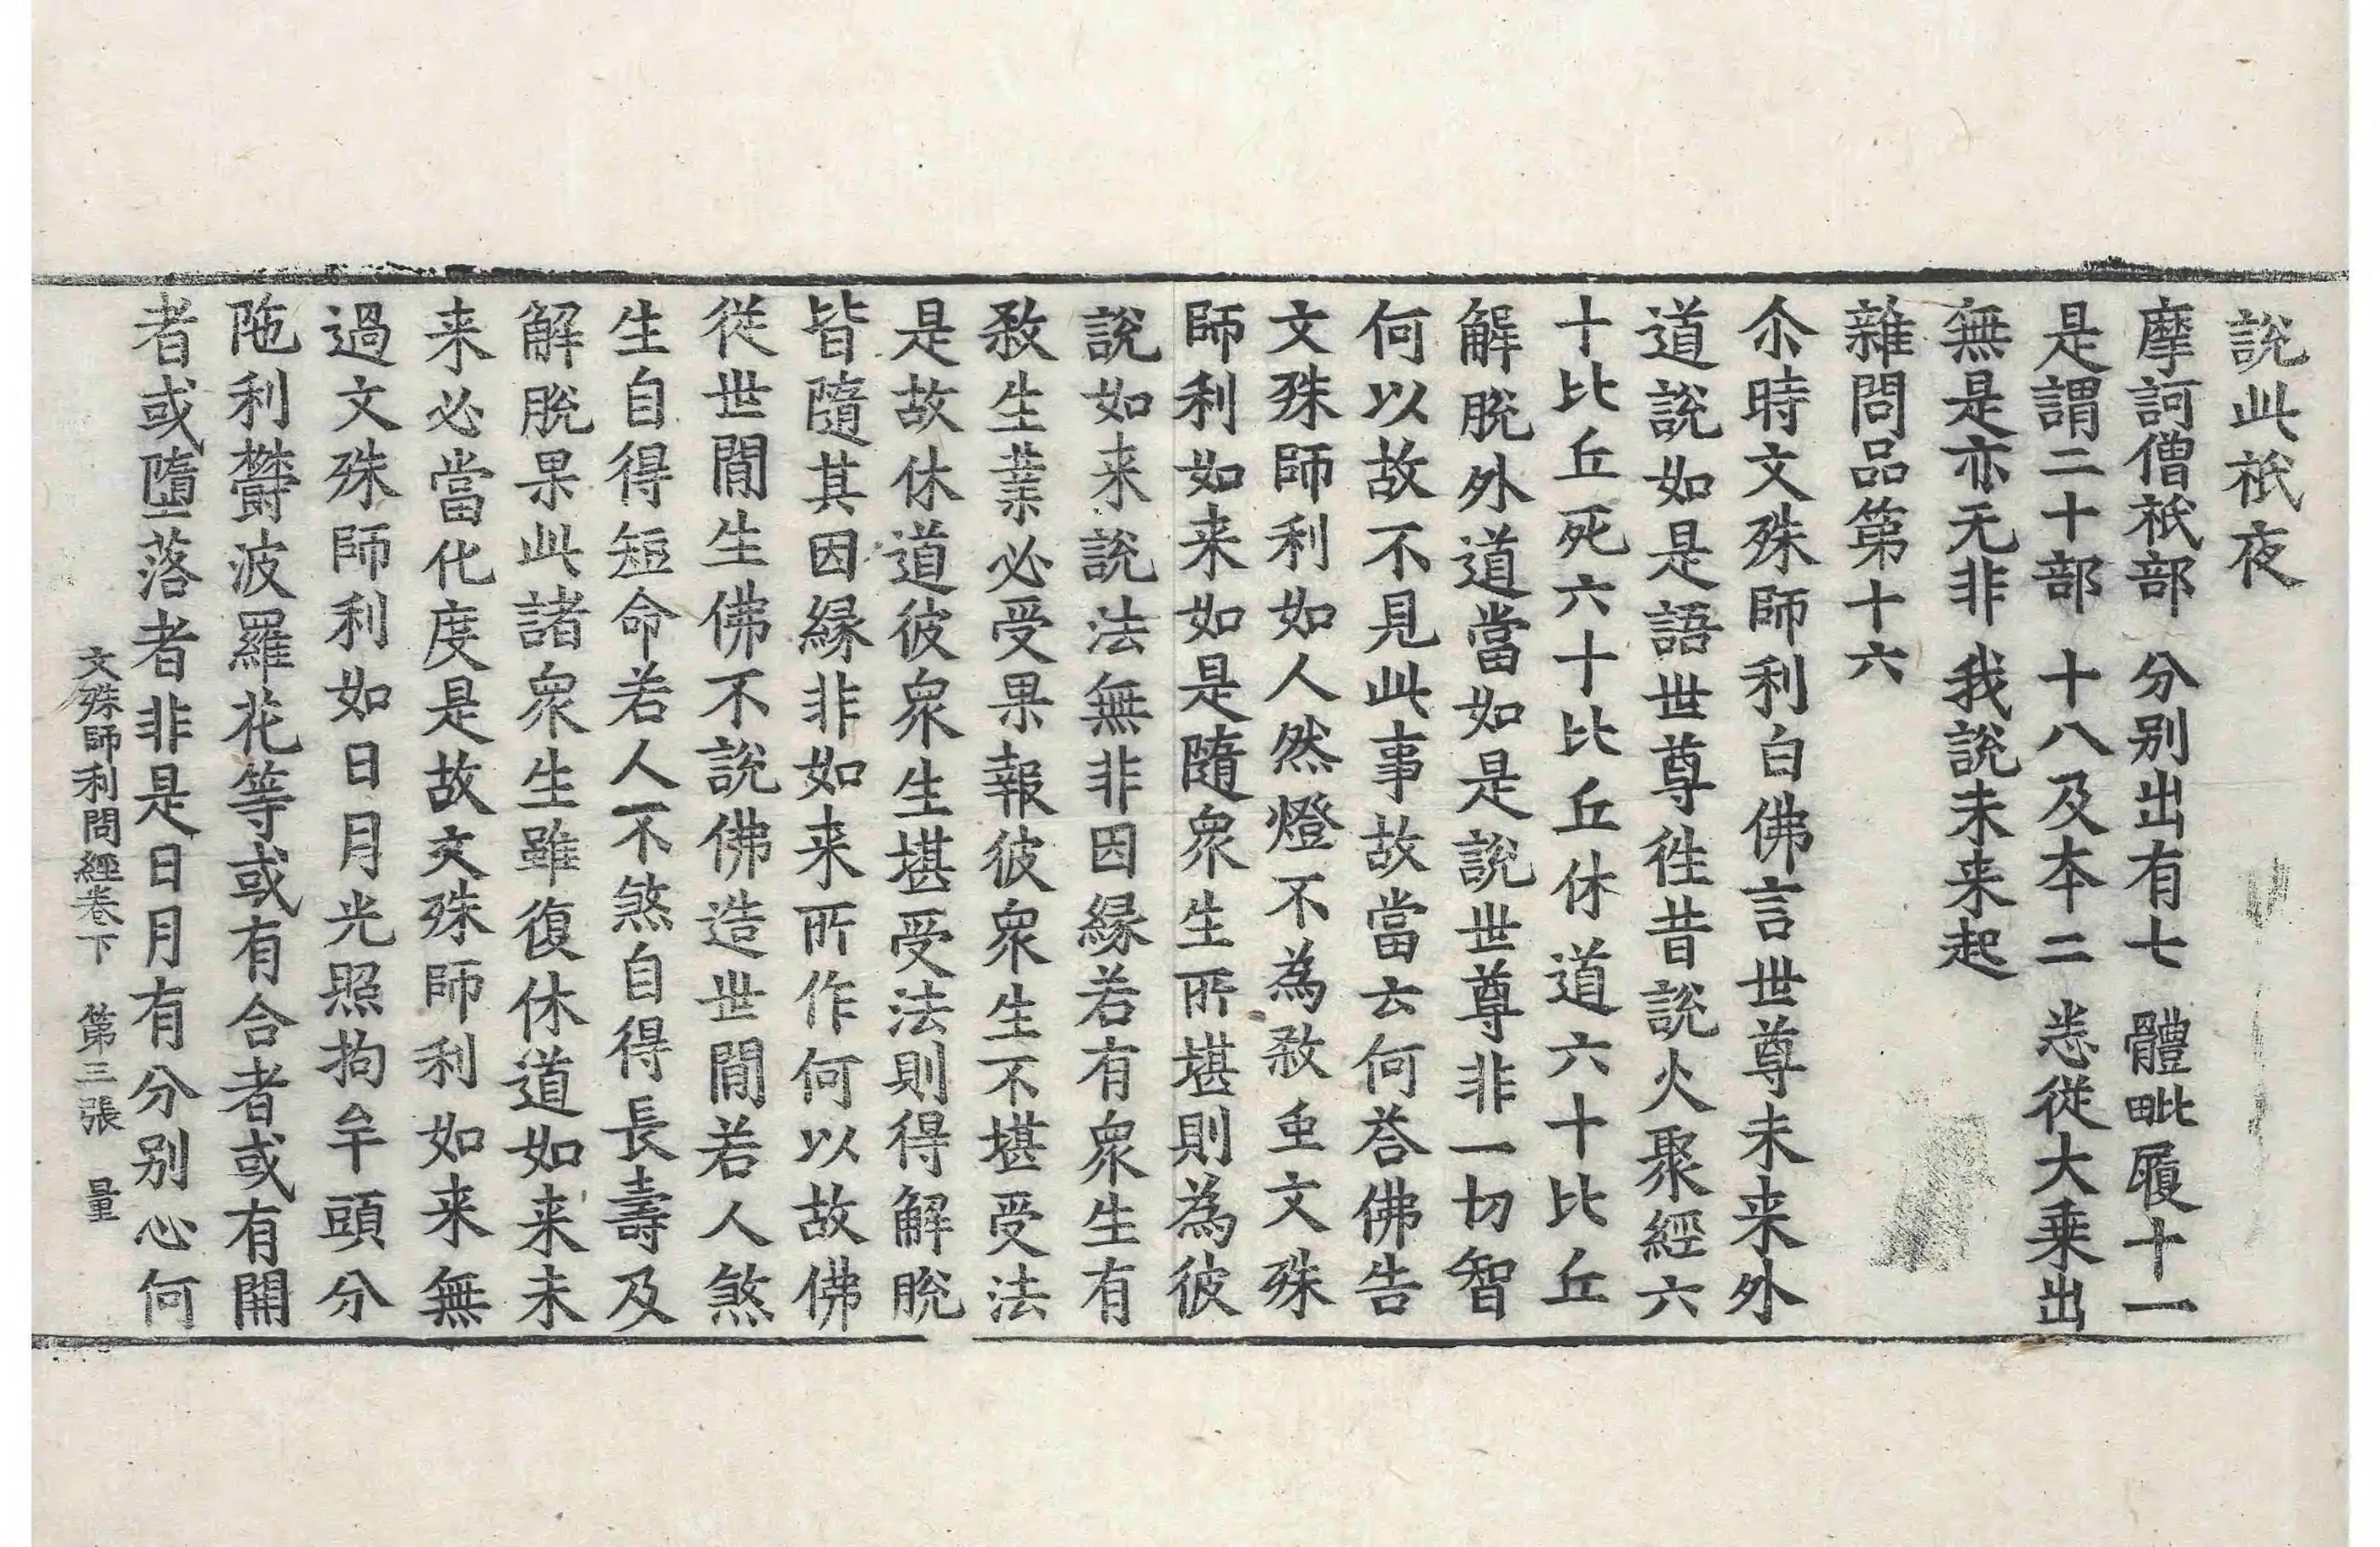 説此祇夜
摩訶僧祇部 分別出有七 體毗履十一
是謂二十部 十八及本二 悉從大乗出
無是亦无非 我説未来起
雜問品第十六
尒時文殊師利白佛言世尊未来外
道説如是語世尊徃昔説火聚經六
十比丘死六十比丘休道六十比丘
解脱外道當如是説世尊非一切智
何以故不見此事故當云何荅佛告
文殊師利如人然燈不為敎虫文殊
師利如来如是隨衆生所堪則為彼
説如来説法無非因縁若有衆生有
敎生業必受果報彼衆生不堪受法
是故休道彼衆生堪受法則得解脱
皆隨其因縁非如来所作何以故佛
從世間生佛不説佛造世間若人煞
生自得短命若人不煞自得長壽及
解脱果此諸衆生雖復休道如来未
来必當化度是故文殊師利如来無
過文殊師利如日月光照拘牟頭分
陁利欝波羅花等或有合者或有開
者或墮落者非是日月有分別心何
文殊師利問經卷下 第三張 量